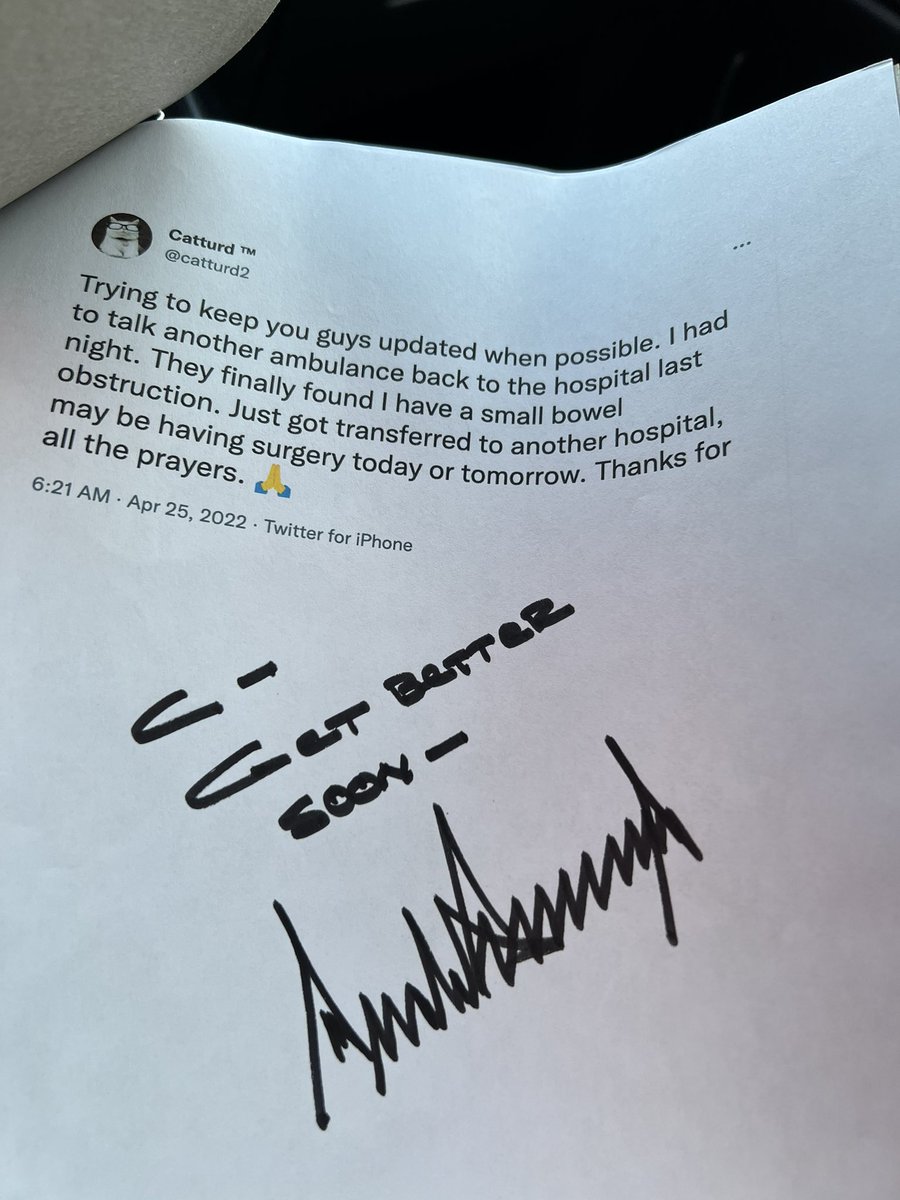 Catturd ™
@catturd2
...
Trying to keep you guys updated when possible. I had
to talk another ambulance back to the hospital last
night. They finally found I have a small bowel
obstruction. Just got transferred to another hospital,
may be having surgery today or tomorrow. Thanks for
all the prayers. 🙏
6:21 AM · Apr 25, 2022 · Twitter for iPhone
C-
GET BETTER
SOON-